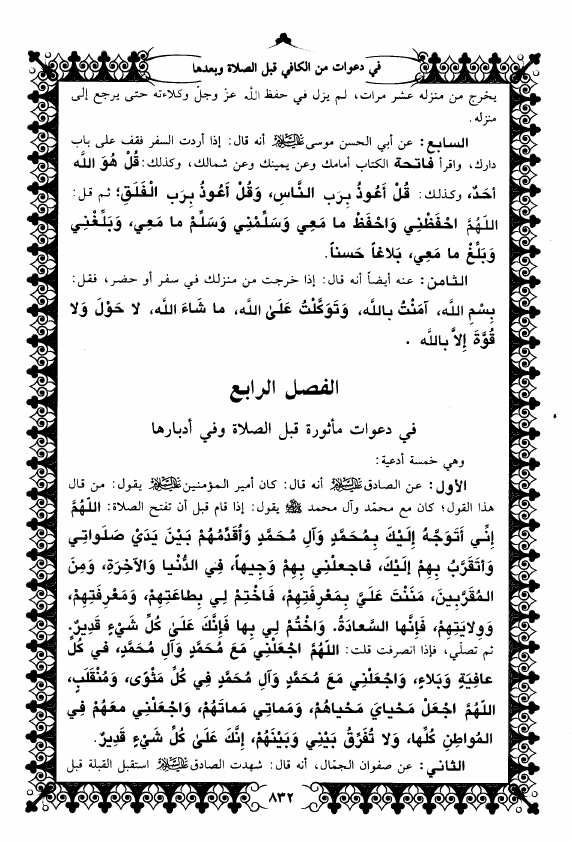 في دعوات من الكافي قبل الصلاة وبعدها
يخرج من منزله عشر مرات، لم يزل في حفظ الله عزّ وجلّ وكلاءته حتى يرجع إلى
منزله.
السابع: عن أبي الحسن موسى عليه السلام أنه قال: إذا أردت السفر فقف على باب
دارك، واقرأ فاتحة الكتاب أمامك وعن يمينك وعن شمالك، وكذلك: قُلْ هُوَ الله
أحَدٌ، وكذلك: قُلْ أعُوذُ بِرَبِ النَّاسِ، وَقُلْ أعُوذُ بِرَبِ الْفَلَقِ؛ ثم قل:
اللهُمَّ احْفَظْنِي وَاحْفَظْ ما مَعِي وَسَلِّمْنِي وَسَلِّمْ ما مَعِي، وَبَلِّغْنِي
وَبَلِّغْ ما مَعِي، بَلاغاً حَسناً.
الثامن: عنه أيضاً أنه قال: إذا خرجت من منزلك في سفر أو حضر، فقل:
بِسْمِ الله، آمَنْتُ بالله، وَتَوَكَّلْتُ عَلىٰ الله، ما شَاءَ الله، لا حَوْلَ وَلا
قُوَّةَ إلاَّ بالله .
الفصل الرابع
في دعوات مأثورة قبل الصلاة وفي أدبارها
وهي خمسة أدعية:
الأول: عن الصادق عليه السلام أنه قال: كان أمير المؤمنين عليه السلام يقول: من قال
هذا القول؛ كان مع محمّد وآل محمد ﷺ يقول: إذا قام قبل أن تفتح الصلاة: اللهُمَّ
إنِّي أتَوَجَّهُ إلَيْكَ بِمُحَمَّدٍ وَآلِ مُحَمَّدٍ وَأُقَدِّمُهُمْ بَيْنَ يَدَيْ صَلَواتِي
وَأتَقَرَّبُ بِهِمْ إلَيْكَ، فاجعلْنِي بِهِمْ وَجِيهاً، فِي الدُّنْيا وَالآخِرَةِ، وَمِنَ
المُقَرَّبِينَ، مَنَنْتَ عَلَيَّ بِمَعْرِفَتِهِمْ، فَاخْتِمْ لِي بِطاعَتِهِمْ، وَمَعْرِفَتِهِمْ،
وَوِلايَتِهِمْ، فَإنَّها السَّعادَةُ. وَاخْتُمْ لِي بِها فَإنَّكَ عَلىٰ كُلِّ شَيْءٍ قَدِيرٌ.
ثم تصلّي، فإذا انصرفت قلت: اللهُمَّ اجْعَلْنِي مَعَ مُحَمَّدٍ وَآلِ مُحَمَّدٍ، في كُلِّ
عافِيَةٍ وَبَلاءٍ، وَاجْعَلْنِي مَعَ مُحَمَّدٍ وَآلِ مُحَمَّدٍ فِي كُلِّ مَثْوًى، وَمُنْقَلَبٍ،
اللهُمَّ اجْعَلْ مَحْيايَ مَحْياهُمْ، وَمَماتِي مَماتَهُمْ، وَاجْعَلْنِي معَهُمْ فِي
المُواطِنِ كُلِّها، وَلا تُفَرِّقْ بَيْنِي وَبَيْنَهُمْ، إنَّكَ عَلىٰ كُلِّ شَيْءٍ قَدِيرٌ.
الثاني: عن صفوان الجمّال، أنه قال: شهدت الصادق عليه السلام استقبل القبلة قبل
٨٣٢